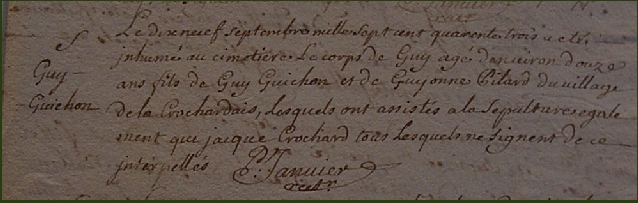 S
Guy
Guichon
Le dix neuf septembre mille sept cent quarente trois a ete
inhumé au cimetiere Le corps de Guy agé denviron douze
ans fils de Guy Guichon et de Guyonne Pilard du village
de la Crochardais, Lesquels ont assistés a la Sepulture egale
ment que jacque Crochard tous Lesquels ne signent de ce
interpellés P. Janvier
rect.r